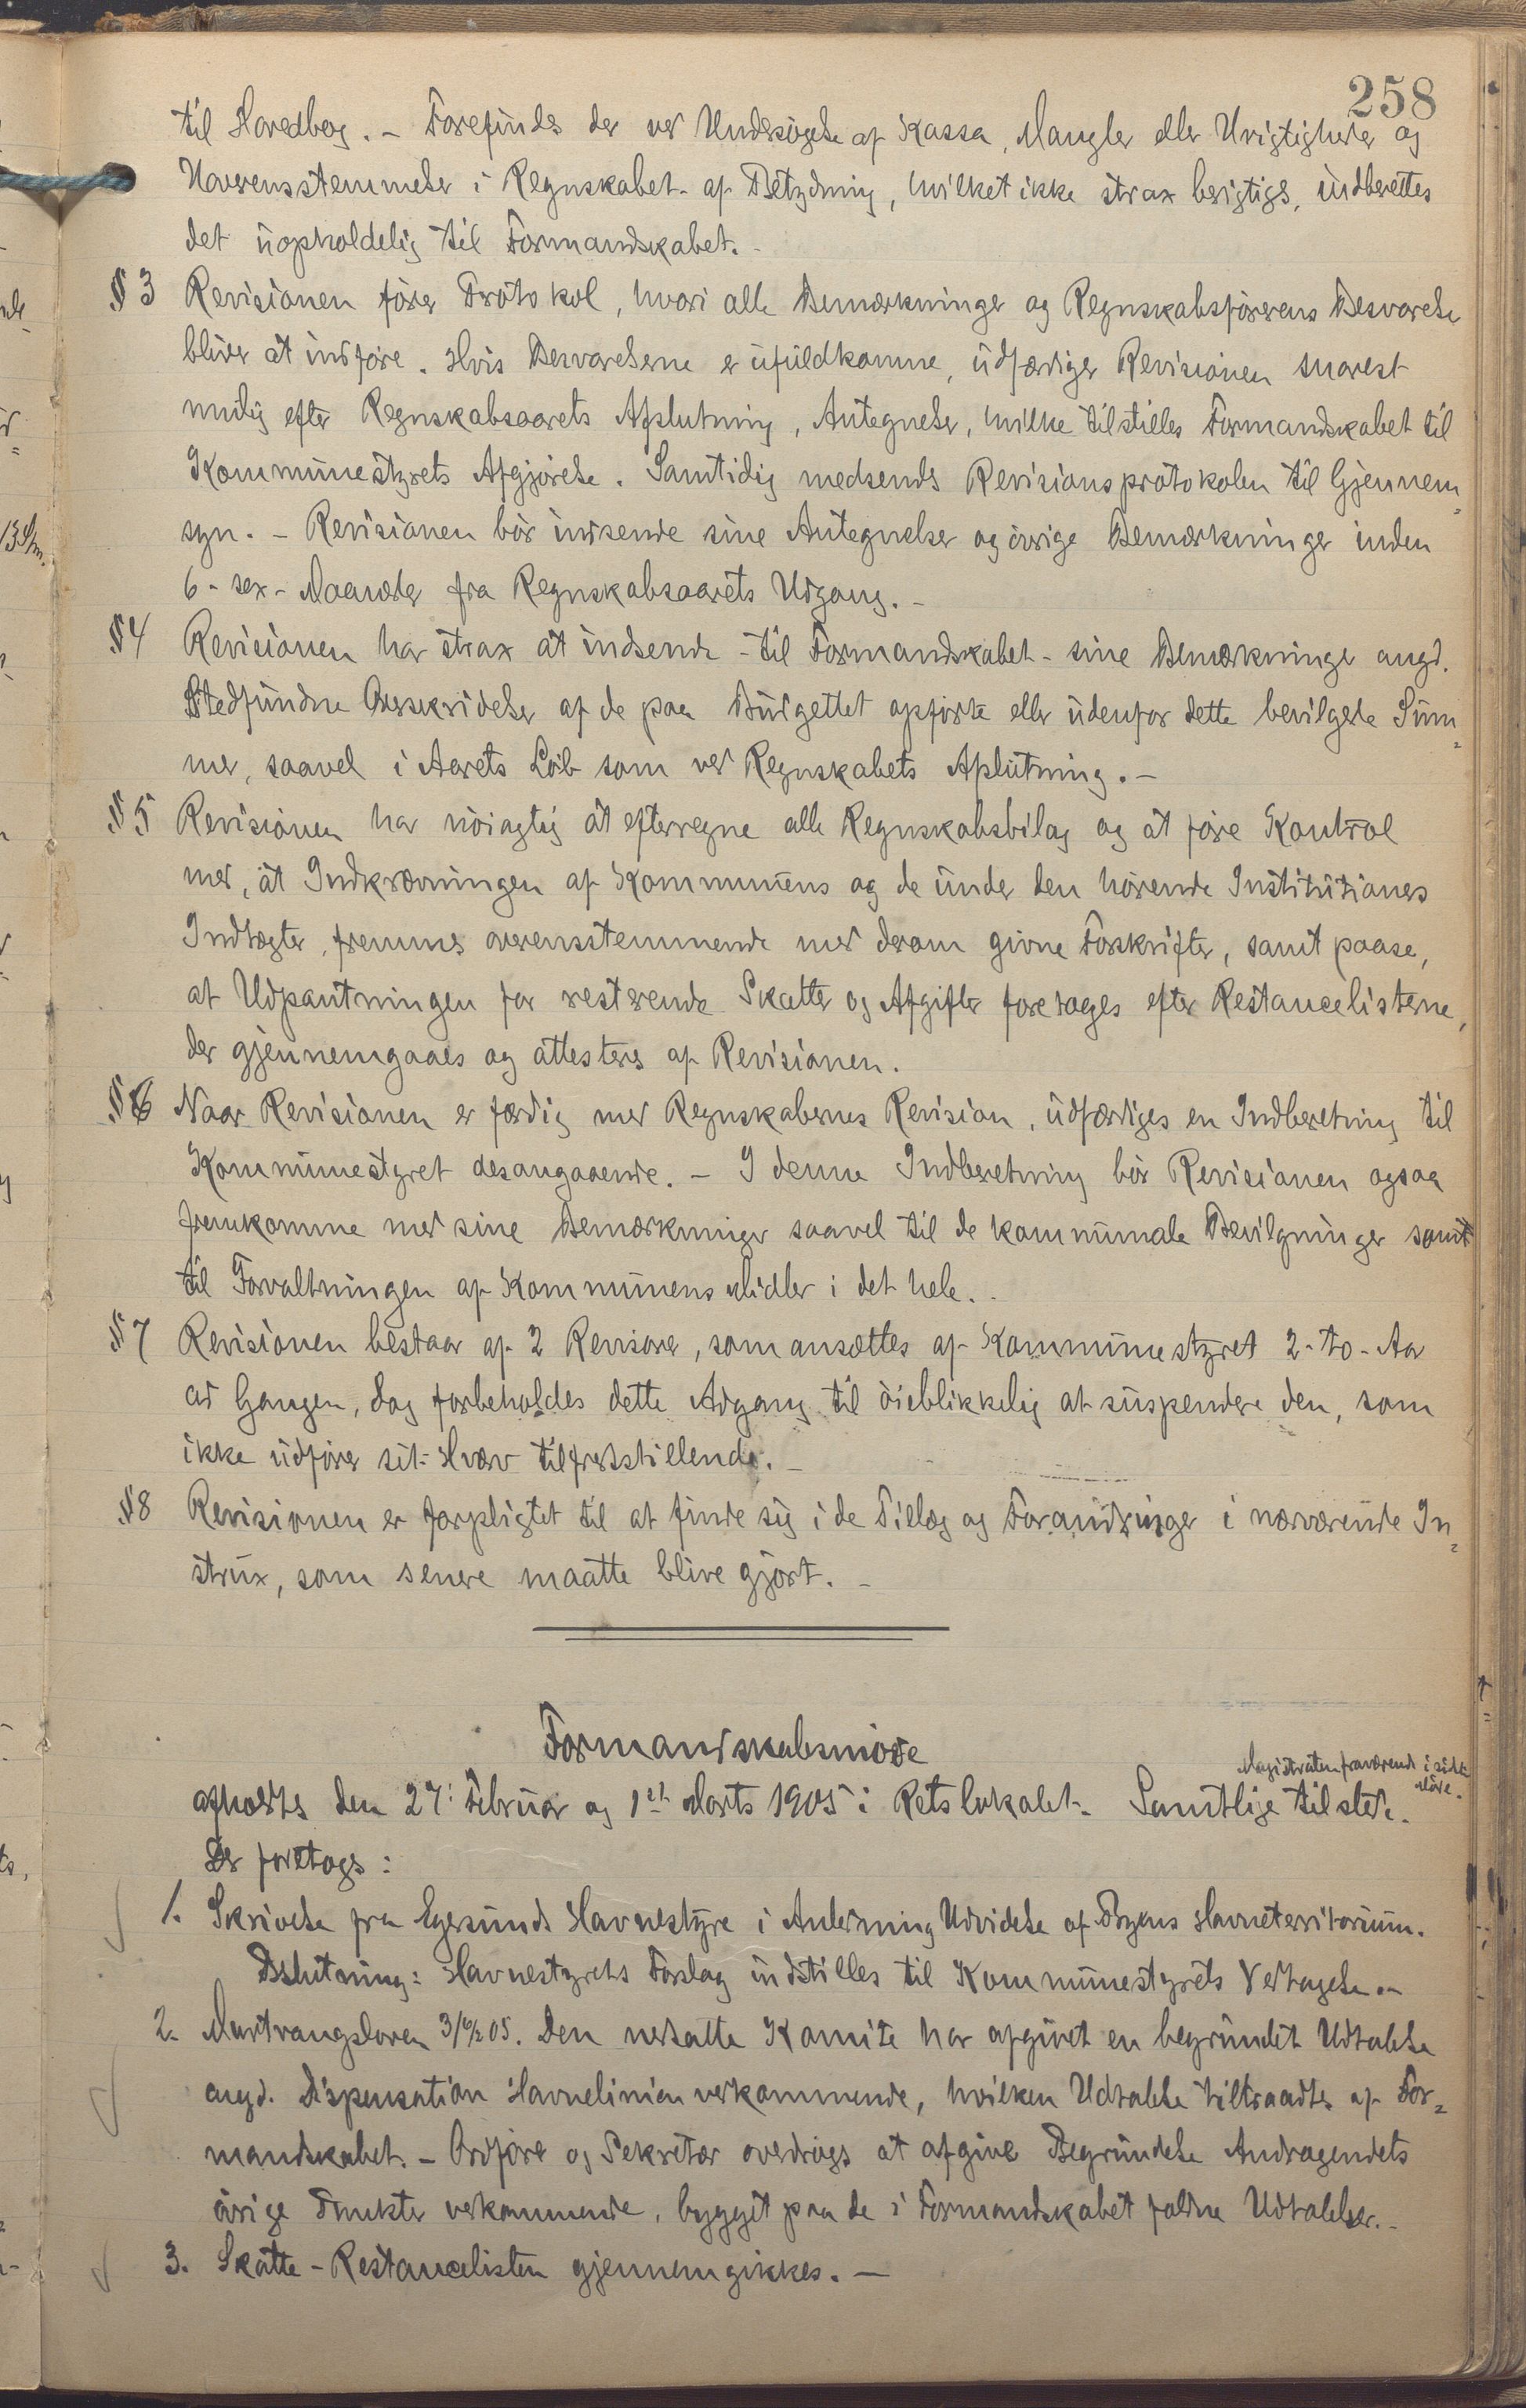 258
til Hovedbog. – Forefindes der ved Undersøgelse af Kassa, Mangler eller Urigtigheder og
Uoverensstemmelser i Regnskabet af Betydning, hvilket ikke strax berigtiges, indberettes
det uopholdelig til Formandskabet. –
§ 3 Revisionen fører Protokol, hvori alle Bemærkninger og Regnskabsførerens Besvarelse
bliver at indføre. Hvis Besvarelserne er ufuldkomne, udfærdiger Revisionen snarest
mulig efter Regnskabsaarets Afslutning, Antegnelser, hvilke tilstilles Formandskabet til
Kommunestyrets Afgjørelse. Samtidig medsendes Revisionsprotokolen til Gjennem=
syn. – Revisionen bør indsende sine Antegnelser og øvrige Bemærkninger inden
6 - sex - Maaneder fra Regnskabsaarets Udgang. –
§ 4 Revisionen har strax at indsende - til Formandskabet - sine Bemærkninger angd.
Stedfundne Overskridelser af de paa Budgettet opførte eller udenfor dette bevilgede Sum=
mer, saavel i Aarets Løb som ved Regnskabets Aflutning. –
§ 5 Revisionen har nøiagtig at efterregne alle Regnskabsbilag og at føre Kontrol
med, at Indkrævningen af Kommunens og de under den hørende Institutioners
Indtægter, fremmes overensstemmende med derom givne Forskrifter, samt paase,
at Udpantningen for resterende Skatter og Afgifter foretages efter Restancelisterne,
der gjennemgaaes og attesteres af Revisionen.
§ 6 Naar Revisionen er færdig med Regnskabernes Revision, udfærdiges en Indberetning til
Kommunestyret desangaaende. – I denne Indberetning bør Revisionen ogsaa
fremkomme med sine Bemærkninger saavel til de kommunale Bevilgninger samt
til Forvaltningen af Kommunens Midler i det hele. .
§ 7 Revisionen bestaar af 2 Revisorer, som ansættes af Kommunestyret 2 - to - Aar
ad Gangen, dog forbeholdes dette Adgang til øieblikkelig at suspendere den, som
ikke udfører sit Hverv tilfredsstillende. –
§ 8 Revisionen er forpligtet til at finde sig i de Tillæg og Forandringer i nærværende In=
strux, som senere maatte blive gjort. –
Formandskabsmøde
Magistraten fraværende i sidste
Møde.
afholdtes den 27: Februar og 1ste Marts 1905 i Retslokalet. Samtlige tilstede.
Der foretoges:
1. Skrivelse fra Egersunds Havnestyre i Anledning Udvidelse af Byens Havneterritorium.
Beslutning: Havnestyrets Forslag indstilles til Kommunestyrets Vedtagelse. –
2. Murtvangsloven 3/6/2 05. Den nedsatte Komite har afgivet en begrundet Udtalelse
angd. Dispensation Havnelinien vedkommende, hvilken Udtalelse tiltraadtes af For=
mandskabet. – Ordfører og Sekretær overdroges at afgive Begrundelse Andragendets
øvrige Punkter vedkommende, bygget paa de i Formandskabet faldne Udtalelser. –
3. Skatte - Restancelisten gjennemgikkes. –